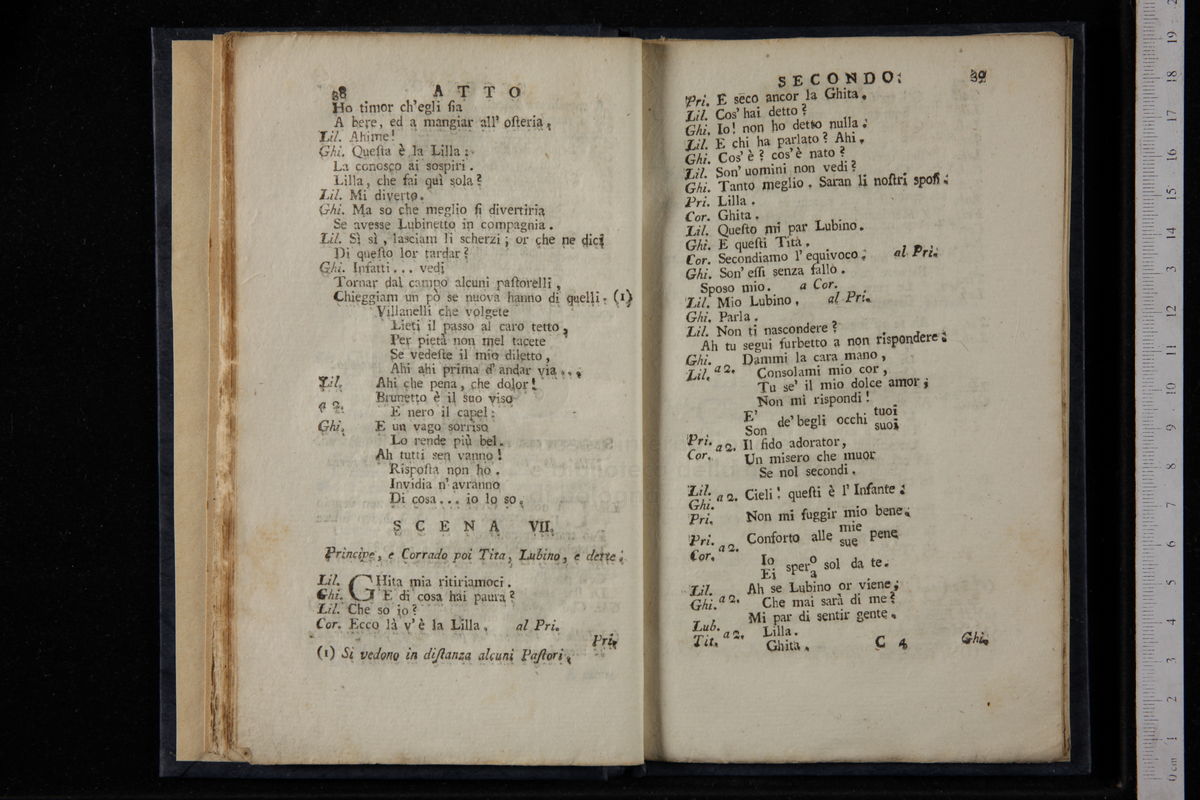 38 ATTO
Ho timor ch'egli ſia
A bere, ed a mangiar all' oſteria,
Lil. Ahime!
Ghi. Queſta è la Lilla:
La conosco ai sospiri.
Lilla, che fai quì sola?
Lil. Mi diverto.
Ghi. Ma so che meglio ſi divertiria
Se avesse Lubinetto in compagnia.
Lil. Sì sì, lasciam li scherzi; or che ne dici
Di queſto lor tardar?
Ghi. Infatti... vedi
Tornar dal campo alcuni paſtorelli,
Chieggiam un pò se nuova hanno di quelli. (1)
Villanelli che volgete
Lieti il passo al caro tetto,
Per pietà non mel tacete
Se vedeſte il mio diletto,
Ahi ahi prima d'andar via...
Lil. Ahi che pena, che dolor!
Brunetto è il suo viso
a 2. E nero il capel:
Ghi. E un vago sorriso
Lo rende più bel.
Ah tutti sen vanno!
Rispoſta non ho.
Invidia n'avranno
Di cosa... io lo so.
SCENA VII.
Principe, e Corrado poi Tita, Lubino, e dette.
Lil. GHita mia ritiriamoci.
Ghi. E di cosa hai paura?
Lil. Che so io?
Cor. Ecco là v'è la Lilla. al Pri.
Pri.
(1) Si vedono in diſtanza alcuni Paſtori.
SECONDO. 39
Pri. E seco ancor la Ghita.
Lil. Cos' hai detto?
Ghi. Io! non ho detto nulla.
Lil. E chi ha parlato? Ahi.
Ghi. Cos'è? cos'è nato?
Lil. Son' uomini non vedi?
Ghi. Tanto meglio. Saran li noſtri spoſi.
Pri. Lilla.
Cor. Ghita.
Lil. Queſto mi par Lubino.
Ghi. E queſti Tita.
Cor. Secondiamo l'equivoco. al Pri.
Ghi. Son' eſſi senza fallo.
Sposo mio. a Cor.
Lil. Mio Lubino, al Pri.
Ghi. Parla.
Lil. Non ti nascondere?
Ah tu segui furbetto a non rispondere.
Ghi. Dammi la cara mano,
Lil. a 2. Consolami mio cor,
Tu se' il mio dolce amor;
Non mi rispondi!
E' tuoi
de' begli occhi
Son suoi
Pri. a 2. Il fido adorator,
Cor. Un misero che muor
Se nol secondi.
Lil. a 2. Cieli! queſti è l' Infante.
Ghi.
Pri. Non mi fuggir mio bene.
Pri. mie
a 2. Conforto alle pene
Cor. sue
Io o
sper sol da te.
Ei a
Lil. Ah se Lubino or viene,
Ghi. a 2. Che mai sarà di me?
Mi par di sentir gente.
Lub. a 2. Lilla.
Tit. Ghita. C 4 Ghi.